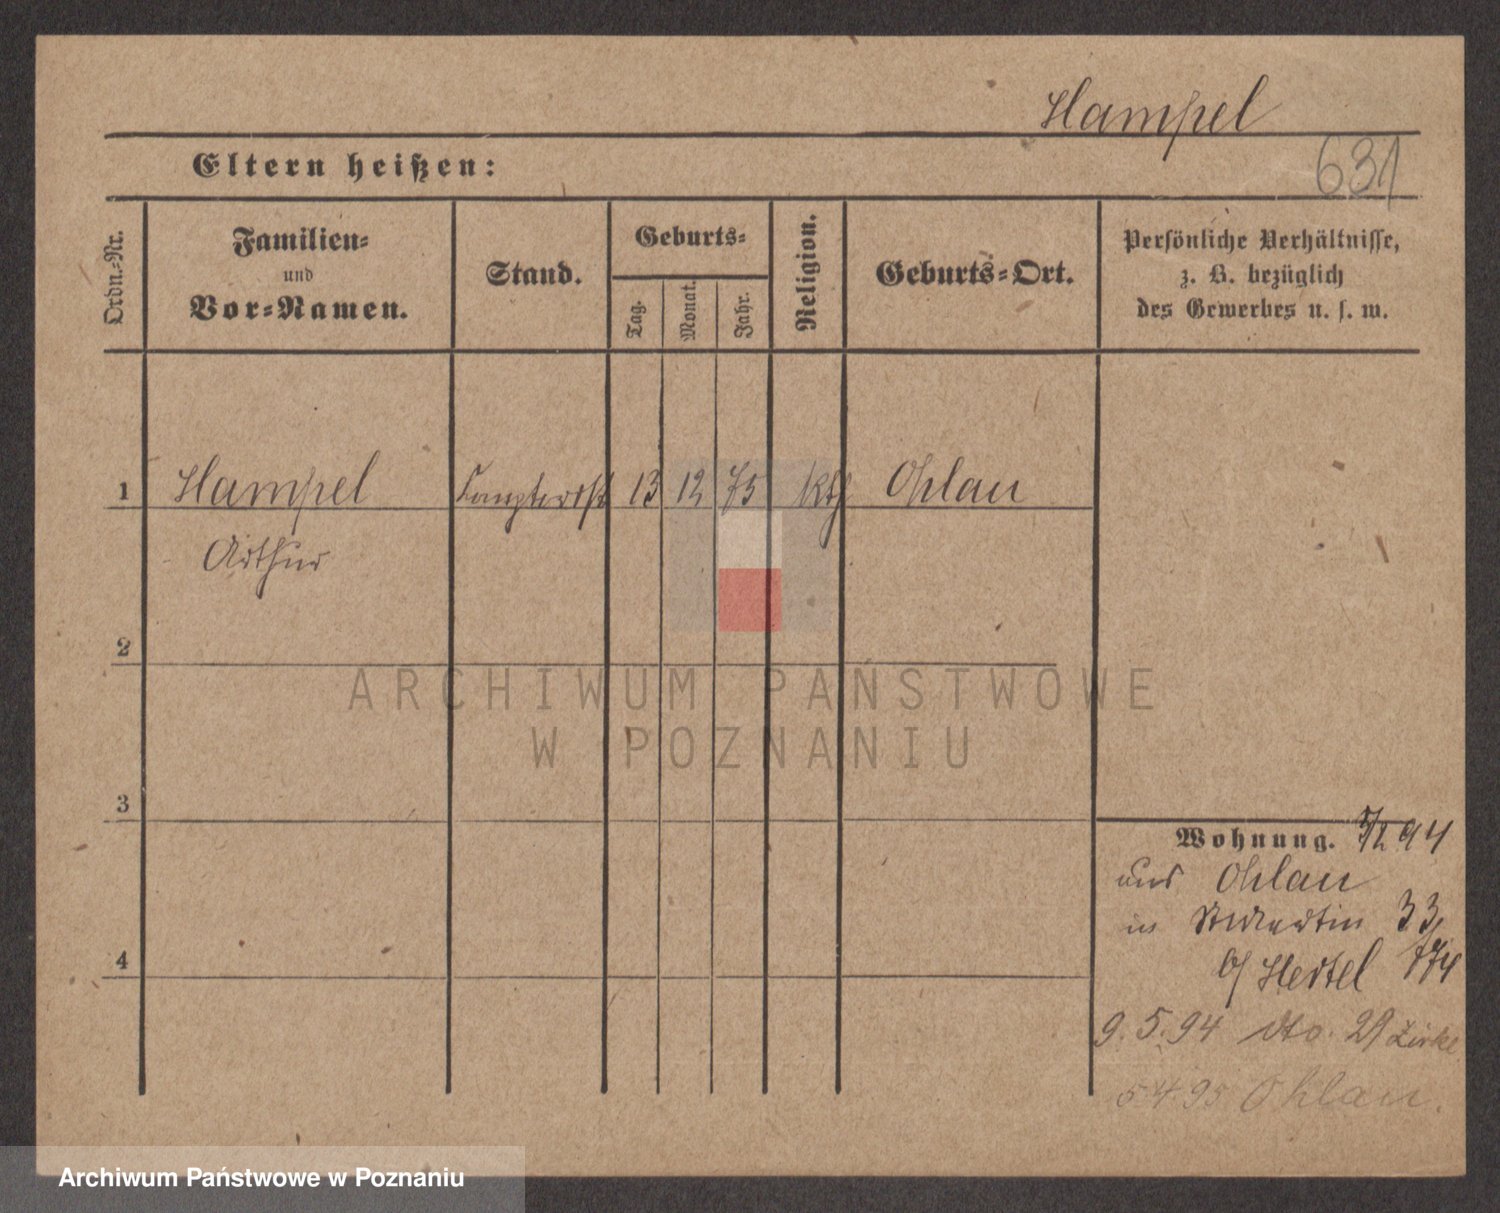 Hampel
631
Eltern heißen:
Ordn.-Nr.
Familien-
und
Vor-Namen.
Stand.
Geburts-
Tag.
Monat.
Jahr.
Religion.
Geburts-Ort.
Persönliche Verhältnisse,
z. B. bezüglich
des Gewerbes u. s. w.
1 Hampel 13 12 75 kth Ohlau
Arthur
2
3
4
Wohnung. 94
aus Ohlau
in St Martin 33
b/ Hertel
9.5.94 dto. 29 Zirke
5 4 95 Ohlau.
ARCHIWUM PAŃSTWOWE
W POZNANIU
Archiwum Państwowe w Poznaniu